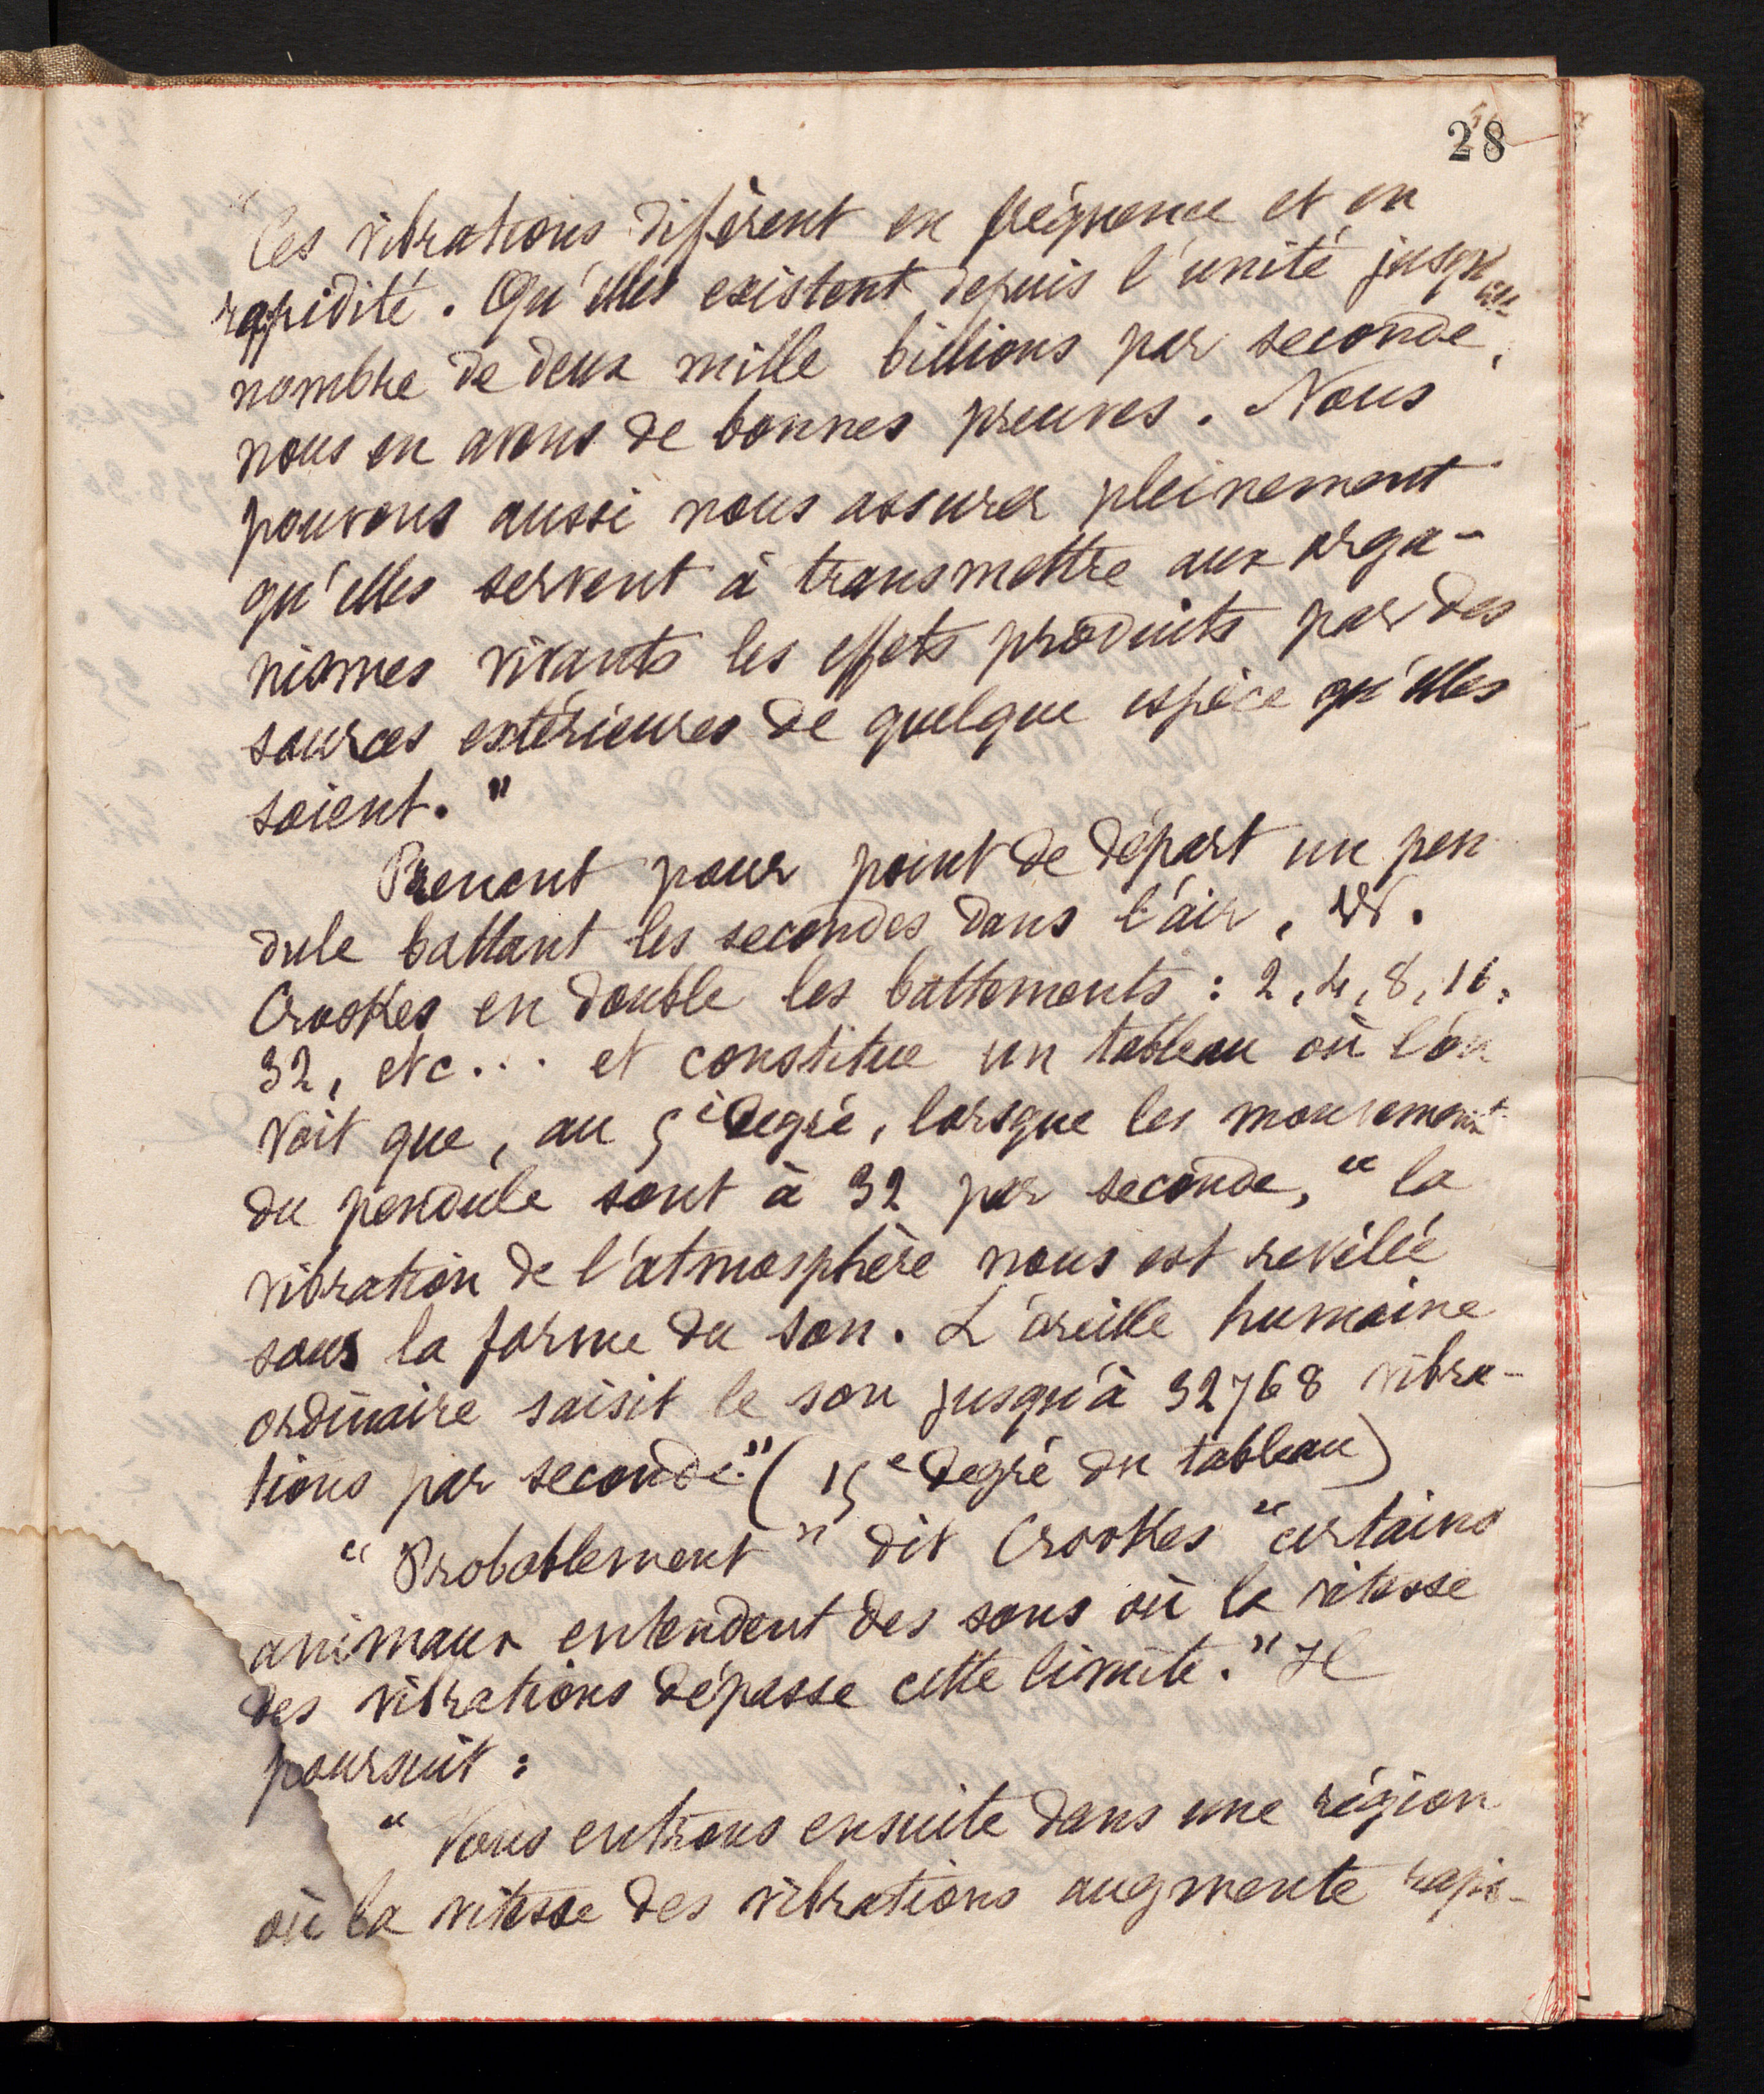 28
"Ces vibrations difèrent en fréquence et en
rapidité. Qu'elles existent depuis l'unité jusqu'au
nombre de deux mille billions par seconde,
nous en avons de bonnes preuves. Nous
pouvons aussi nous assurer pleinement
qu'elles servent à transmettre aux orga-
nismes vivants les effets produits par des
sources extérieures de quelque espèce qu'elles
soient."
Prenant pour point de départ un pen
dule battant les secondes dans l'air, W.
Crookes en double les battements : 2, 4, 8, 16,
32, etc... et constitue un tableau où l'on
voit que, au 5e degré, lorsque les mouvement
du pendule sont à 32 par seconde, "la
vibration de l'atmosphère nous est revélée
sous la forme du son. L'oreille humaine
ordinaire saisit le son jusqu'à 32768 vibra-
tions par seconde." (15e degré du tableau)
"Probablement" dit Crookes "certains
animaux entendent des sons où la vitesse
des vibrations dépasse cette limite." Il
poursuit :
"Nous entrons ensuite dans une région
où la vitesse des vibrations augmente rapi-